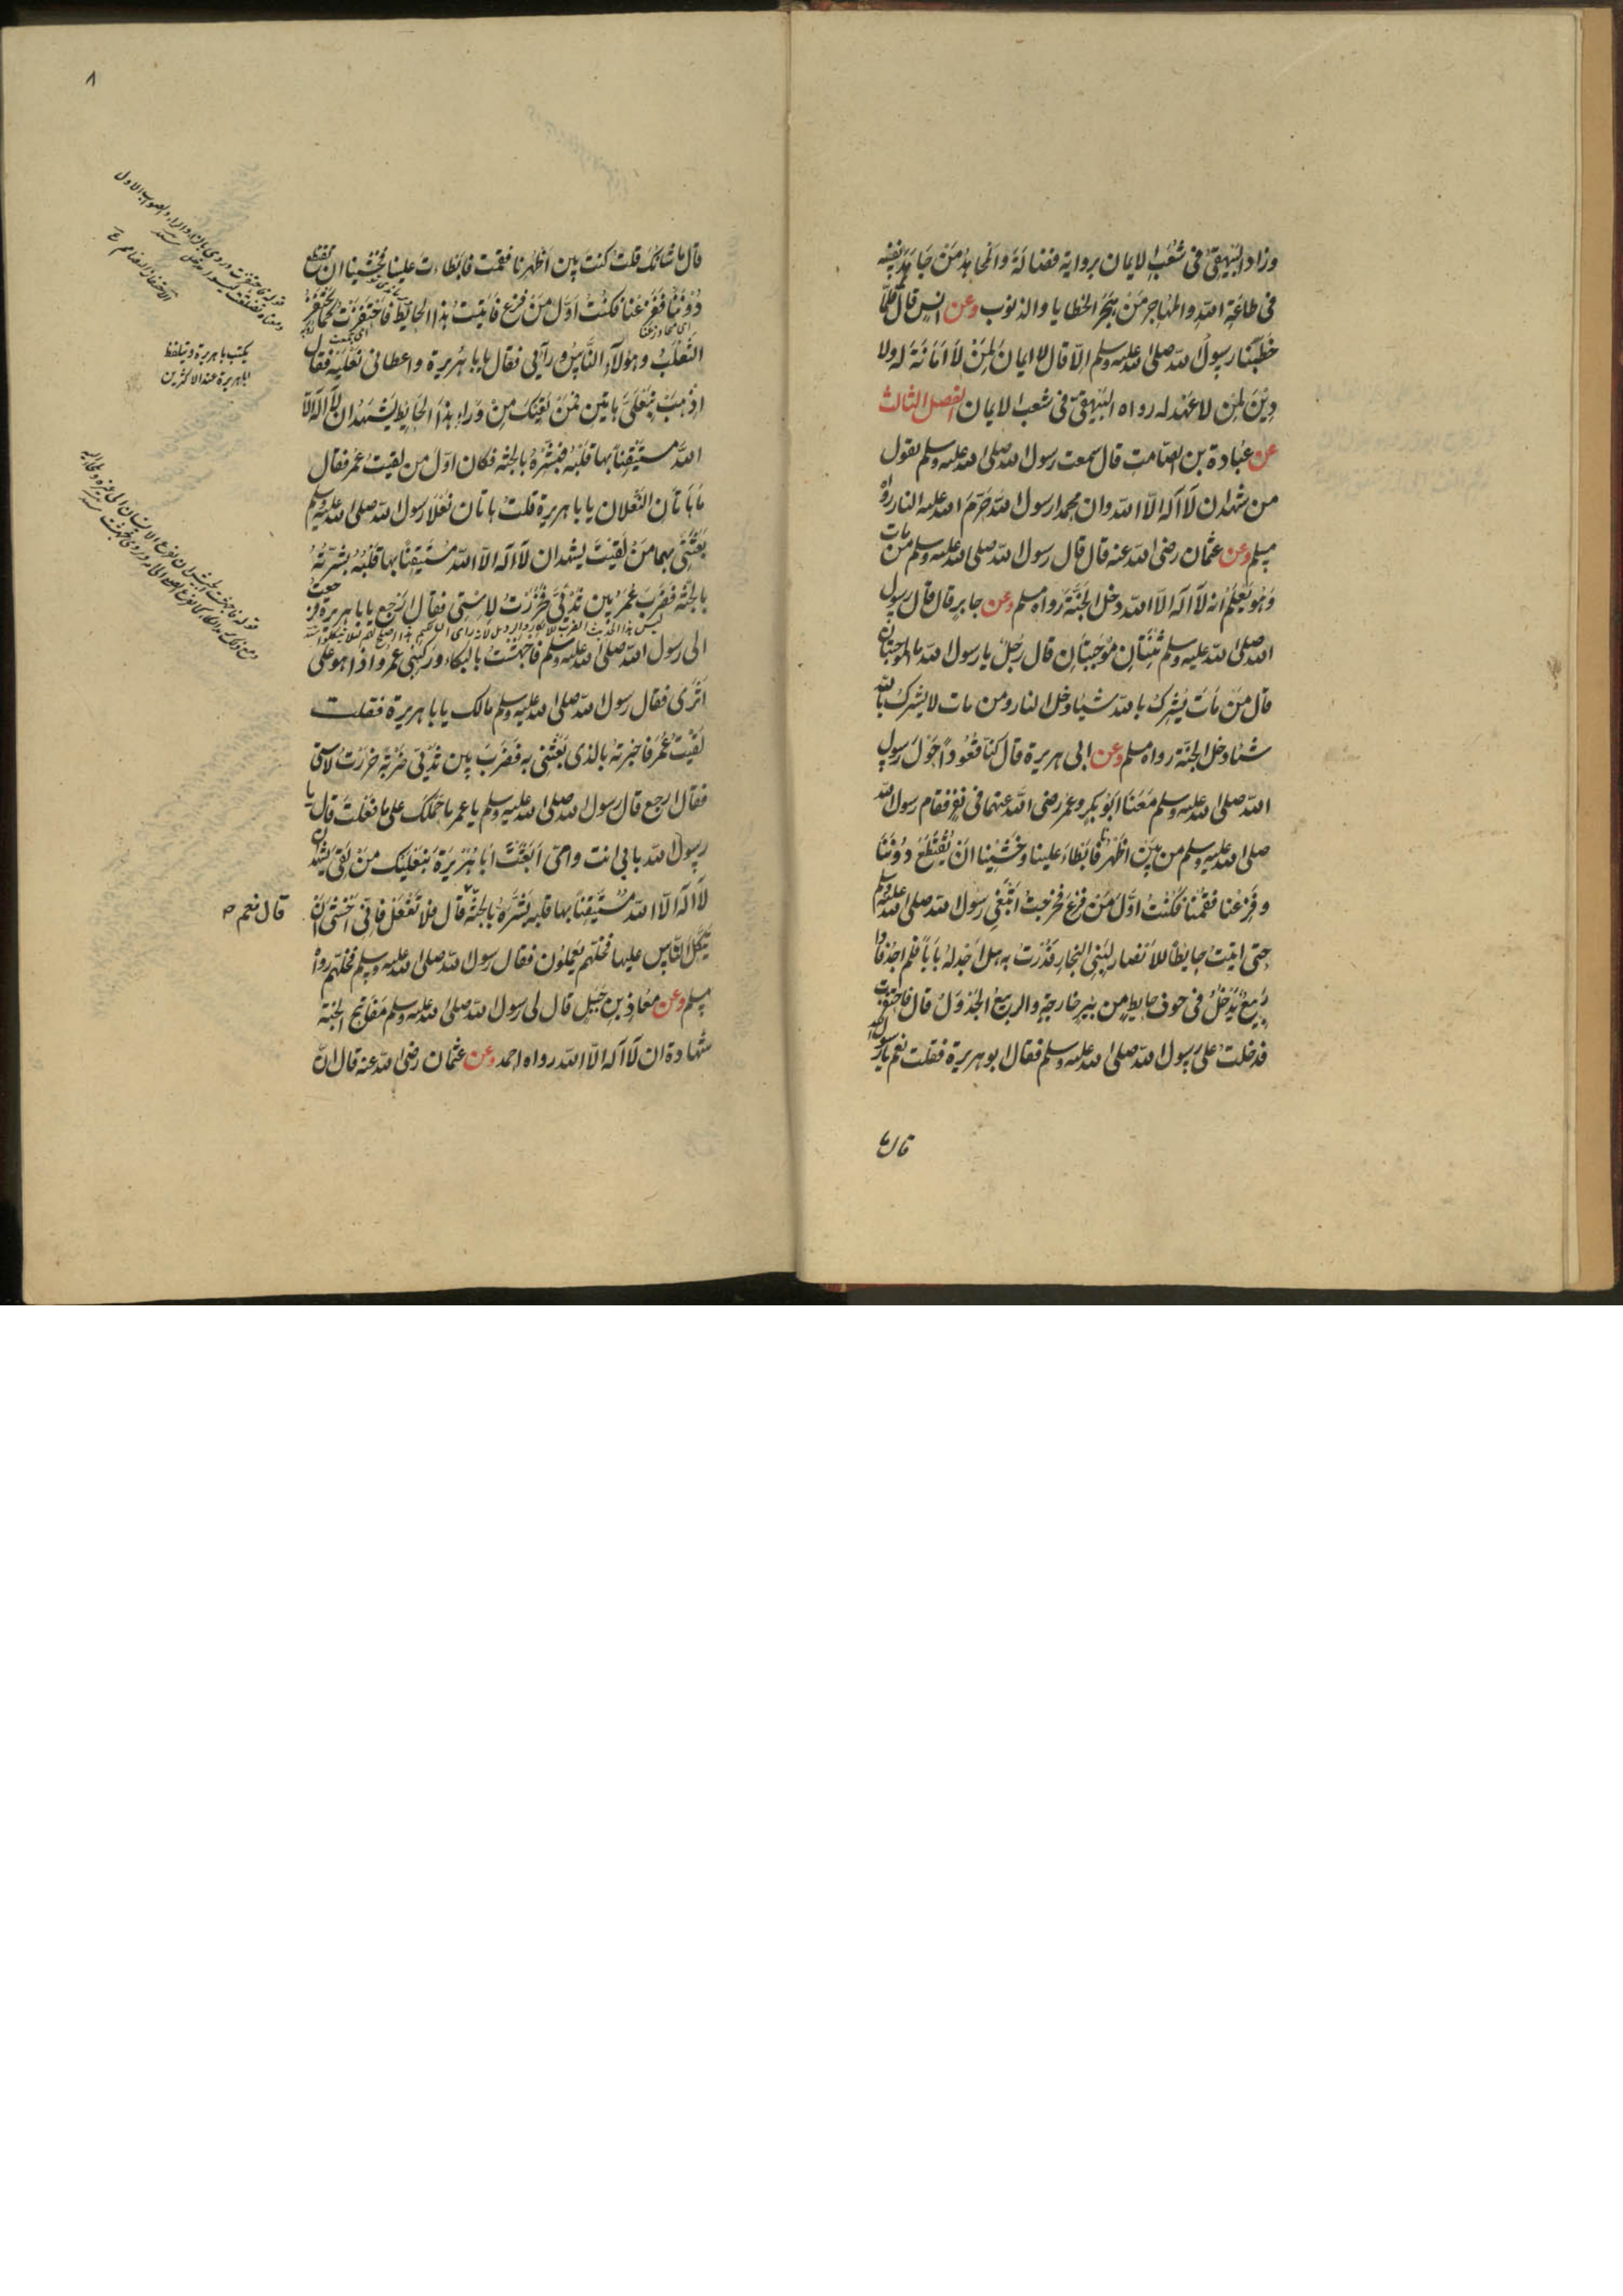 وزاد البيهقي في شعب الايمان برواية فضالة والمجاهد من جاهد نفسه
في طاعة الله والمهاجر من هجر الخطايا والذنوب وعن انس قال قلما
خطبنا رسول الله صلى الله عليه وسلم الا قال لا ايمان لمن لا امانة له ولا
دين لمن لا عهد له رواه البيهقي في شعب الايمان الفصل الثالث
عن عبادة بن الصامت قال سمعت رسول الله صلى الله عليه وسلم يقول
من شهد ان لا اله الا الله وان محمدا رسول الله حرم الله عليه النار رواه
مسلم وعن عثمان رضي الله عنه قال قال رسول الله صلى الله عليه وسلم من مات
وهو يعلم انه لا اله الا الله دخل الجنة رواه مسلم وعن جابر قال قال رسول
الله صلى الله عليه وسلم ثنتان موجبتان قال رجل يا رسول الله ما الموجبتان
قال من مات يشرك بالله شيئا دخل النار ومن مات لا يشرك بالله
شيئا دخل الجنة رواه مسلم وعن ابي هريرة قال كنا قعودا حول رسول
الله صلى الله عليه وسلم معنا ابو بكر وعمر رضي الله عنهما في نفر فقام رسول الله
صلى الله عليه وسلم من بين اظهرنا فابطاء علينا وخشينا ان يقتطع دوننا
وفزعنا فقمنا فكنت اول من فزع فخرجت ابتغي رسول الله صلى الله عليه وسلم
حتى اتيت حايطا للانصار لبني النجار فدرت به هل اجد له بابا فلم اجد فاذا
ربيع يدخل في جوف حايط من بير خارجة والربيع الجدول قال فاحتفزت
فدخلت على رسول الله صلى الله عليه وسلم فقال ابو هريرة فقلت نعم يا رسول الله
قال ما
٨
قال ما شانك قلت كنت بين اظهرنا فقمت فابطاءت علينا فخشينا ان تقتطع
دوننا ففزعنا فكنت اول من فزع فاتيت هذا الحايط فاحتفزت كما يحتفز
الثعلب وهؤلاء الناس ورآئي فقال يا با هريرة واعطاني نعليه فقال
اذهب بنعلي هاتين فمن لقيك من وراء هذا الحايط يشهد ان لا اله الا
الله مستيقنا بها قلبه فبشره بالجنة فكان اول من لقيت عمر فقال
ما هاتان النعلان يا با هريرة قلت هاتان نعلا رسول الله صلى الله عليه وسلم
بعثني بهما من لقيت يشهد ان لا اله الا الله مستيقنا بها قلبه بشرته
بالجنة فضرب عمر بين ثديي فخررت لاستي فقال ارجع يا با هريرة فرجعت
الى رسول الله صلى الله عليه وسلم فاجهشت بالبكاء وركبني عمر واذا هو على
اثري فقال رسول الله صلى الله عليه وسلم مالك يا با هريرة فقلت
لقيت عمر فاخبرته بالذي بعثتني به فضرب بين ثديي ضربة خررت لاستي
فقال ارجع قال رسول الله صلى الله عليه وسلم يا عمر ما حملك على ما فعلت قال يا
رسول الله بابي انت وامي ابعثت ابا هريرة بنعليك من لقي يشهد ان
لا اله الا الله مستيقنا بها قلبه بشره بالجنة قال فلا تفعل فاني اخشى ان
قال نعم
يتكل الناس عليها فخلهم يعملون فقال رسول الله صلى الله عليه وسلم فخلهم رواه
مسلم وعن معاذ بن جبل قال لي رسول الله صلى الله عليه وسلم مفاتيح الجنة
شهادة ان لا اله الا الله رواه احمد وعن عثمان رضي الله عنه قال ان
يكتب با هريرة ويتلفظ
ابا هريرة عند الاكثرين